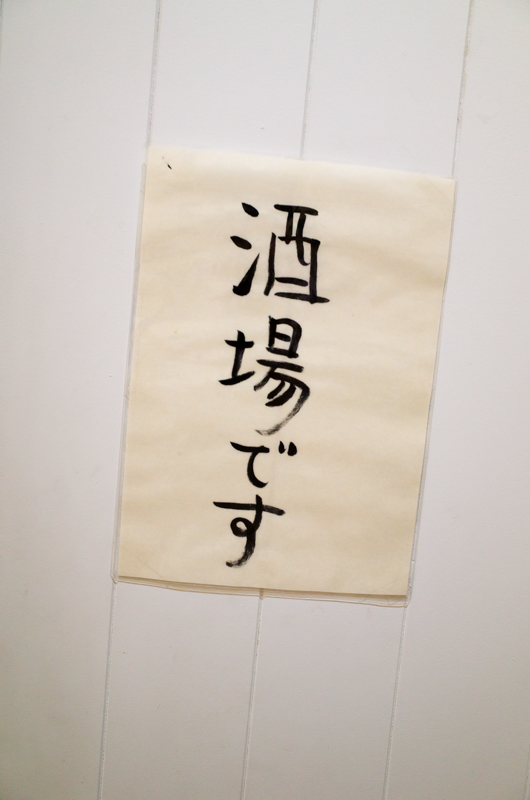 酒場です